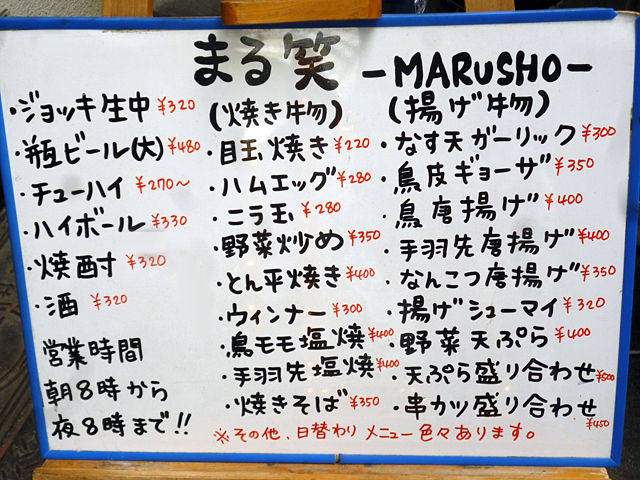 まる笑 -MARUSHO-
・ジョッキ生中 ¥320
・瓶ビール(大) ¥480
・チューハイ ¥270〜
・ハイボール ¥330
・焼酎 ¥320
・酒 ¥320
営業時間
朝8時から
夜8時まで!!
(焼き物)
・目玉焼き ¥220
・ハムエッグ ¥280
・ニラ玉 ¥280
・野菜炒め ¥350
・とん平焼き ¥400
・ウィンナー ¥300
・鳥モモ塩焼 ¥400
・手羽先塩焼 ¥400
・焼きそば ¥350
(揚げ物)
・なす天ガーリック ¥300
・鳥皮ギョーザ ¥350
・鳥唐揚げ ¥400
・手羽先唐揚げ ¥400
・なんこつ唐揚げ ¥350
・揚げシューマイ ¥320
・野菜天ぷら ¥400
・天ぷら盛り合わせ ¥500
・串カツ盛り合わせ ¥450
※その他、日替わりメニュー色々あります。